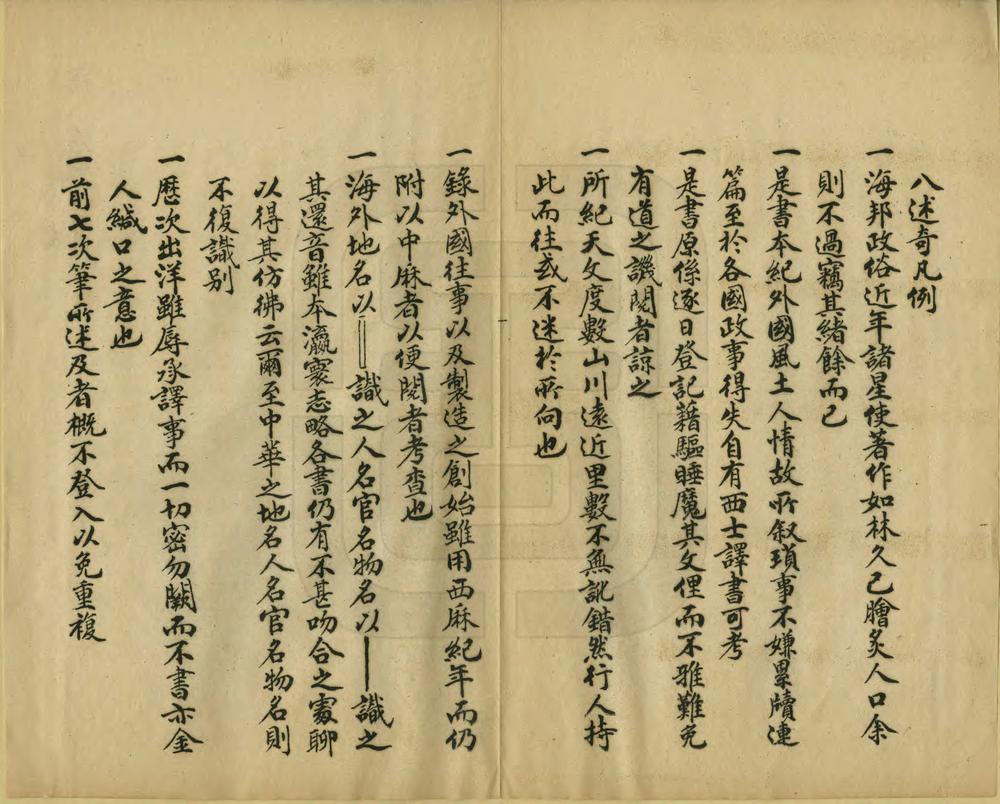 八述奇凡例
一海邦政俗近年諸星使著作如林久已膾炙人口余
則不過竊其緒餘而已
一是書本紀外國風土人情故所敘瑣事不嫌累牘連
篇至於各國政事得失自有西士譯書可考
一是書原係逐日登記藉驅睡魔其文俚而不雅難免
有道之譏閱者諒之
一所紀天文度數山川遠近里數不無訛錯然行人持
此而往或不迷於所向也
一錄外國往事以及製造之創始雖用西厤紀年而仍
附以中厤者以便閱者考查也
一海外地名以＝識之人名官名物名以—識之
其還音雖本瀛寰志略各書仍有不甚吻合之處聊
以得其仿彿云爾至中華之地名人名官名物名則
不復識别
一歷次出洋雖辱承譯事而一切密勿闕而不書亦金
人緘口之意也
一前七次筆所述及者概不登入以免重複